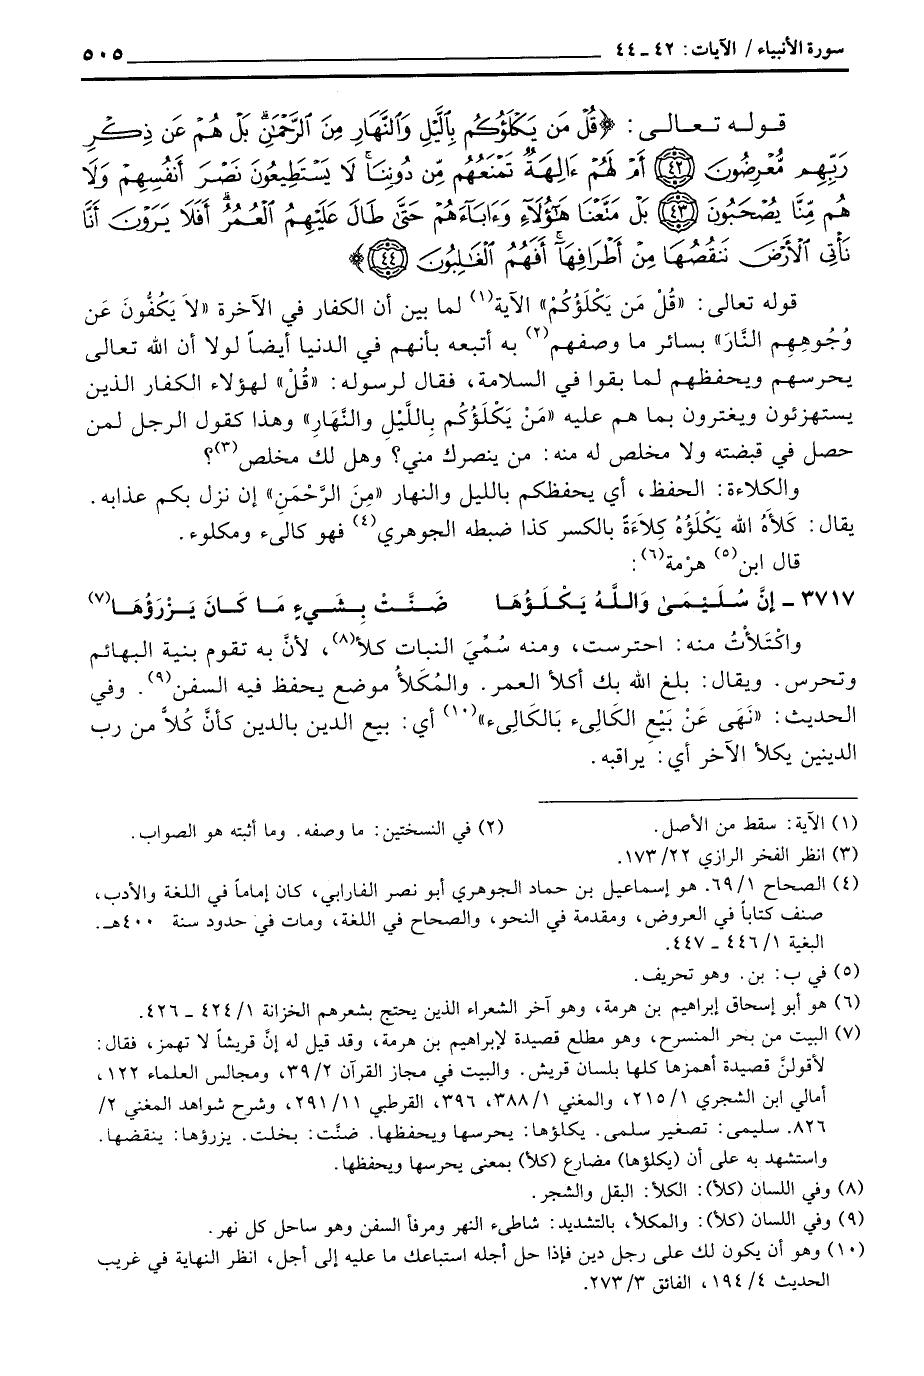 سورة الأنبياء / الآيات: ٤٢ ـ ٤٤ ٥٠٥
قوله تعالى: ﴿قُلْ مَن يَكْلَؤُكُم بِٱلَّيْلِ وَٱلنَّهَارِ مِنَ ٱلرَّحْمَٰنِ ۗ بَلْ هُمْ عَن ذِكْرِ
رَبِّهِم مُّعْرِضُونَ ٤٢ أَمْ لَهُمْ ءَالِهَةٌ تَمْنَعُهُم مِّن دُونِنَا ۚ لَا يَسْتَطِيعُونَ نَصْرَ أَنفُسِهِمْ وَلَا
هُم مِّنَّا يُصْحَبُونَ ٤٣ بَلْ مَتَّعْنَا هَٰٓؤُلَآءِ وَءَابَآءَهُمْ حَتَّىٰ طَالَ عَلَيْهِمُ ٱلْعُمُرُ ۗ أَفَلَا يَرَوْنَ أَنَّا
نَأْتِى ٱلْأَرْضَ نَنقُصُهَا مِنْ أَطْرَافِهَآ ۚ أَفَهُمُ ٱلْغَٰلِبُونَ ٤٤﴾
قوله تعالى: «قُلْ مَن يَكْلَؤُكُمْ» الآية(١) لما بين أن الكفار في الآخرة «لاَ يَكُفُّونَ عَن
وُجُوهِهِم النَّارَ» بسائر ما وصفهم(٢) به أتبعه بأنهم في الدنيا أيضاً لولا أن الله تعالى
يحرسهم ويحفظهم لما بقوا في السلامة، فقال لرسوله: «قُلْ» لهؤلاء الكفار الذين
يستهزئون ويغترون بما هم عليه «مَنْ يَكْلَؤُكُم بِاللَّيْلِ والنَّهَارِ» وهذا كقول الرجل لمن
حصل في قبضته ولا مخلص له منه: من ينصرك مني؟ وهل لك مخلص(٣)؟
والكلاءة: الحفظ، أي يحفظكم بالليل والنهار «مِنَ الرَّحْمَنِ» إن نزل بكم عذابه.
يقال: كَلأَهُ الله يَكْلَؤُهُ كِلاَءَةً بالكسر كذا ضبطه الجوهري(٤) فهو كالىء ومكلوء.
قال ابن(٥) هرْمة(٦):
٣٧١٧ ـ إنَّ سُلَيْمَىٰ وَاللَّهُ يَكْلَؤُهَا ضَنَّتْ بِشَيءٍ مَا كَانَ يَرْزَؤُهَا(٧)
واكْتَلأْتُ منه: احترست، ومنه سُمِّيَ النبات كلأ(٨)، لأنَّ به تقوم بنية البهائم
وتحرس. ويقال: بلغ الله بك أكلأ العمر. والمُكَلأُ موضع يحفظ فيه السفن(٩). وفي
الحديث: «نَهَى عَنْ بَيْعِ الكَالِىء بَالكَالِىء»(١٠) أي: بيع الدين بالدين كأنَّ كُلاًّ من رب
الدينين يكلأ الآخر أي: يراقبه.
(١) الآية: سقط من الأصل. (٢) في النسختين: ما وصفه. وما أثبته هو الصواب.
(٣) انظر الفخر الرازي ٢٢/ ١٧٣.
(٤) الصحاح ١/ ٦٩. هو إسماعيل بن حماد الجوهري أبو نصر الفارابي، كان إماماً في اللغة والأدب،
صنف كتاباً في العروض، ومقدمة في النحو، والصحاح في اللغة، ومات في حدود سنة ٤٠٠هـ.
البغية ١/ ٤٤٦ ـ ٤٤٧.
(٥) في ب: بن. وهو تحريف.
(٦) هو أبو إسحاق إبراهيم بن هرمة، وهو آخر الشعراء الذين يحتج بشعرهم الخزانة ١/ ٤٢٤ ـ ٤٢٦.
(٧) البيت من بحر المنسرح، وهو مطلع قصيدة لإبراهيم بن هرمة، وقد قيل له إنَّ قريشاً لا تهمز، فقال:
لأقولنَّ قصيدة أهمزها كلها بلسان قريش. والبيت في مجاز القرآن ٢/ ٣٩، ومجالس العلماء ١٢٢،
أمالي ابن الشجري ١/ ٢١٥، والمغني ١/ ٣٨٨، ٣٩٦، القرطبي ١١/ ٢٩١، وشرح شواهد المغني ٢/
٨٢٦. سليمى: تصغير سلمى. يكلؤها: يحرسها ويحفظها. ضنَّت: بخلت. يزرؤها: ينقضها.
واستشهد به على أن (يكلؤها) مضارع (كلأ) بمعنى يحرسها ويحفظها.
(٨) وفي اللسان (كلأ): الكلأ: البقل والشجر.
(٩) وفي اللسان (كلأ): والمكلأ، بالتشديد: شاطىء النهر ومرفأ السفن وهو ساحل كل نهر.
(١٠) وهو أن يكون لك على رجل دين فإذا حل أجله استباعك ما عليه إلى أجل، انظر النهاية في غريب
الحديث ٤/ ١٩٤، الفائق ٣/ ٢٧٣.